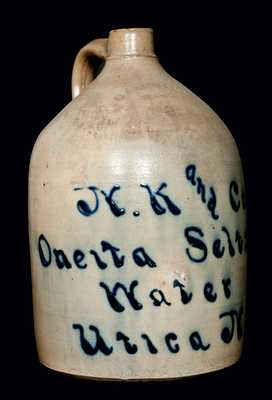 N. K and Co
Oneita Selt
Water
Utica N